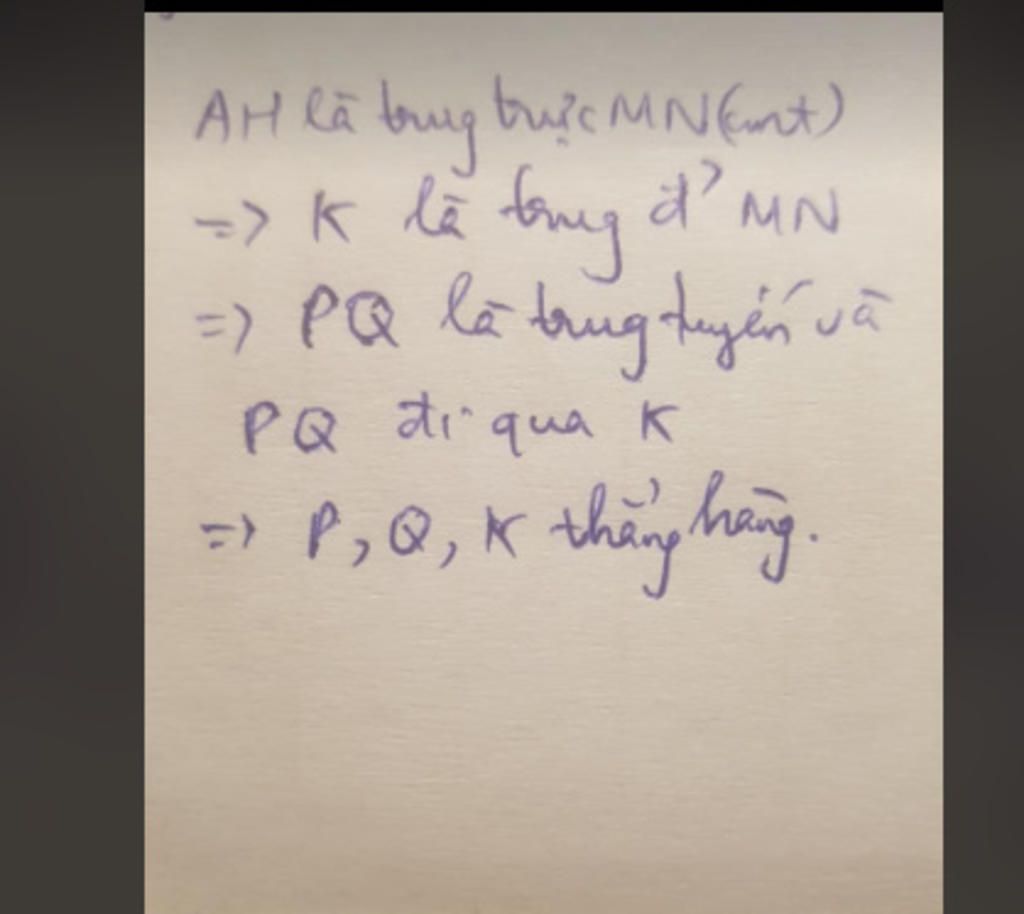 AH là trung trực MN (cmt)
=> K là trung đ' MN
=> PQ là trung tuyến và
PQ đi qua K
=> P, Q, K thẳng hàng.